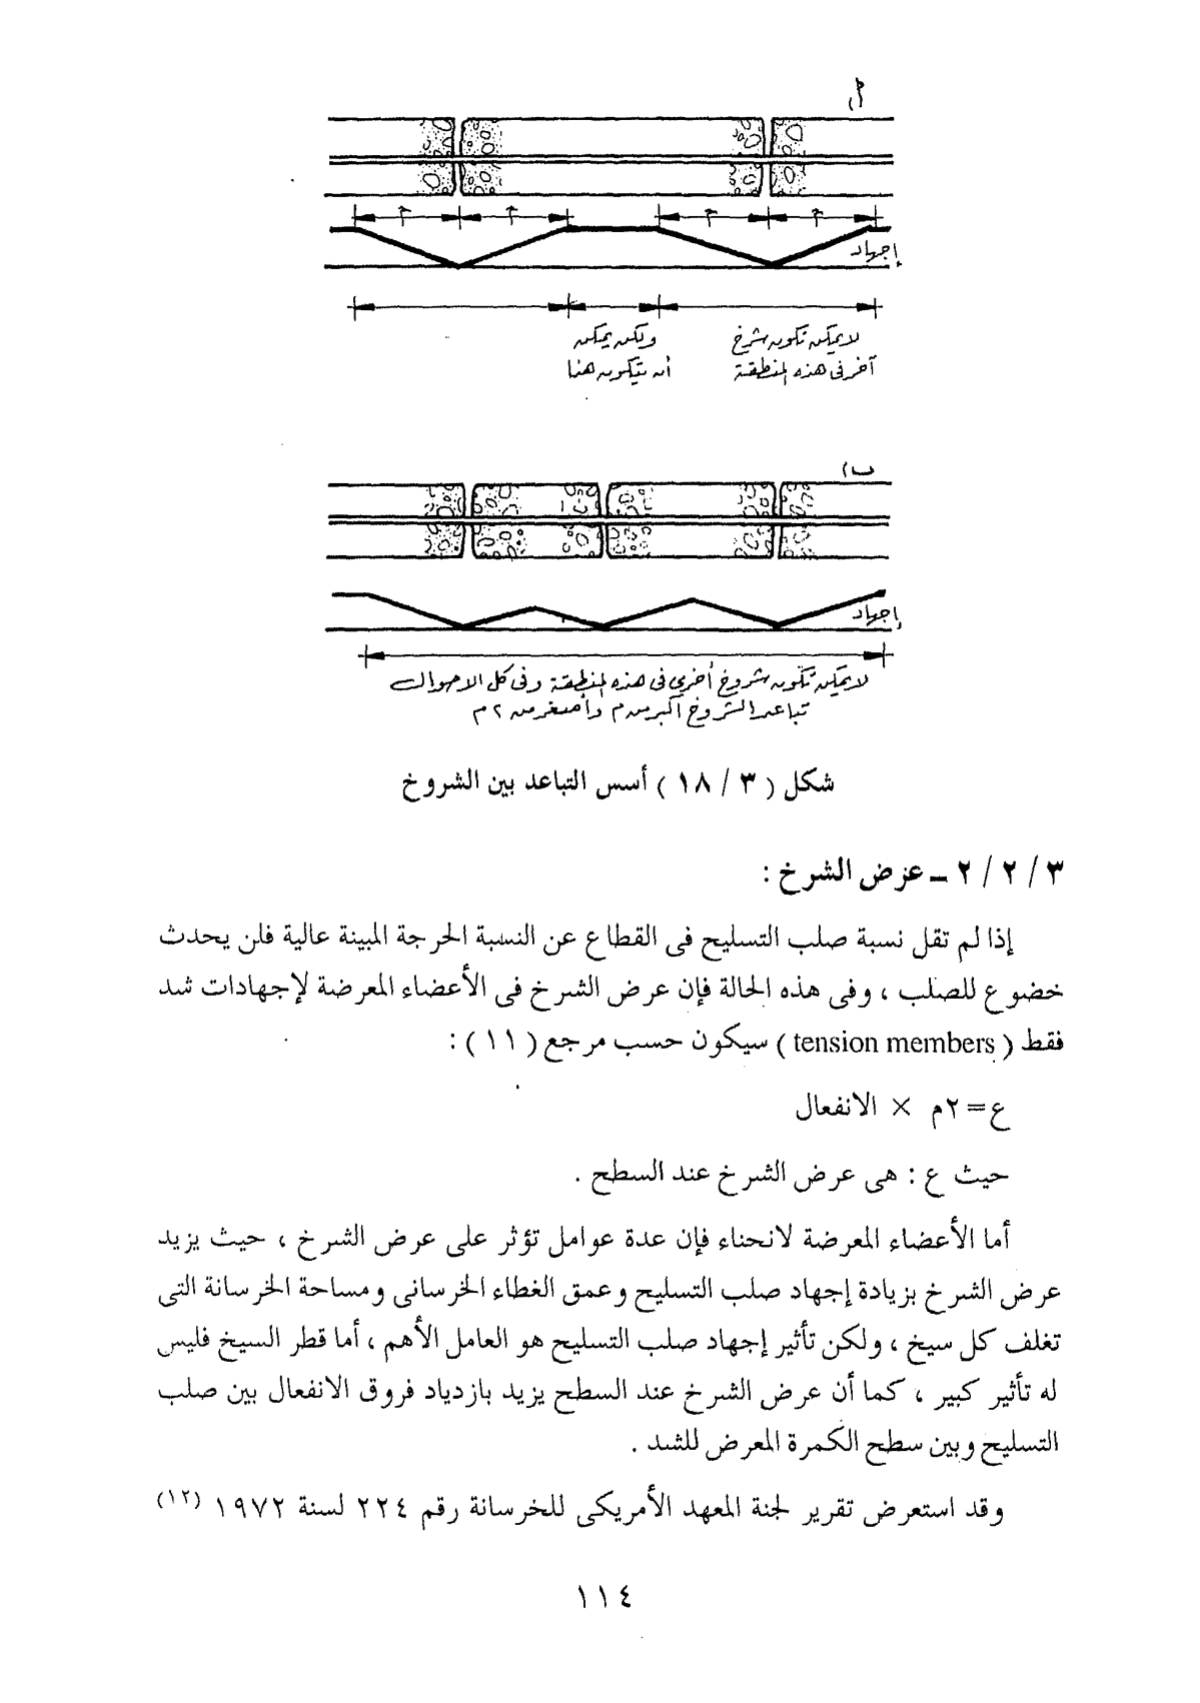 أ)
م م م م
إجهاد
لا يمكن تكون شرخ ولكن يمكن
آخر فى هذه المنطقة أن يتكون هنا
ب)
إجهاد
لا يمكن تكون شروخ أخرى فى هذه المنطقة وفى كل الاحوال
تباعد الشروخ أكبر من م وأصغر من ٢م
شكل ( ٣ / ١٨ ) أسس التباعد بين الشروخ
٣ / ٢ / ٢ ــ عرض الشرخ :
إذا لم تقل نسبة صلب التسليح فى القطاع عن النسبة الحرجة المبينة عالية فلن يحدث
خضوع للصلب ، وفى هذه الحالة فإن عرض الشرخ فى الأعضاء المعرضة لإجهادات شد
فقط ( tension members ) سيكون حسب مرجع ( ١١ ) :
ع = ٢م × الانفعال
حيث ع : هى عرض الشرخ عند السطح .
أما الأعضاء المعرضة لانحناء فإن عدة عوامل تؤثر على عرض الشرخ ، حيث يزيد
عرض الشرخ بزيادة إجهاد صلب التسليح وعمق الغطاء الخرسانى ومساحة الخرسانة التى
تغلف كل سيخ ، ولكن تأثير إجهاد صلب التسليح هو العامل الأهم ، أما قطر السيخ فليس
له تأثير كبير ، كما أن عرض الشرخ عند السطح يزيد بازدياد فروق الانفعال بين صلب
التسليح وبين سطح الكمرة المعرض للشد .
وقد استعرض تقرير لجنة المعهد الأمريكى للخرسانة رقم ٢٢٤ لسنة ١٩٧٢ (١٢)
١١٤